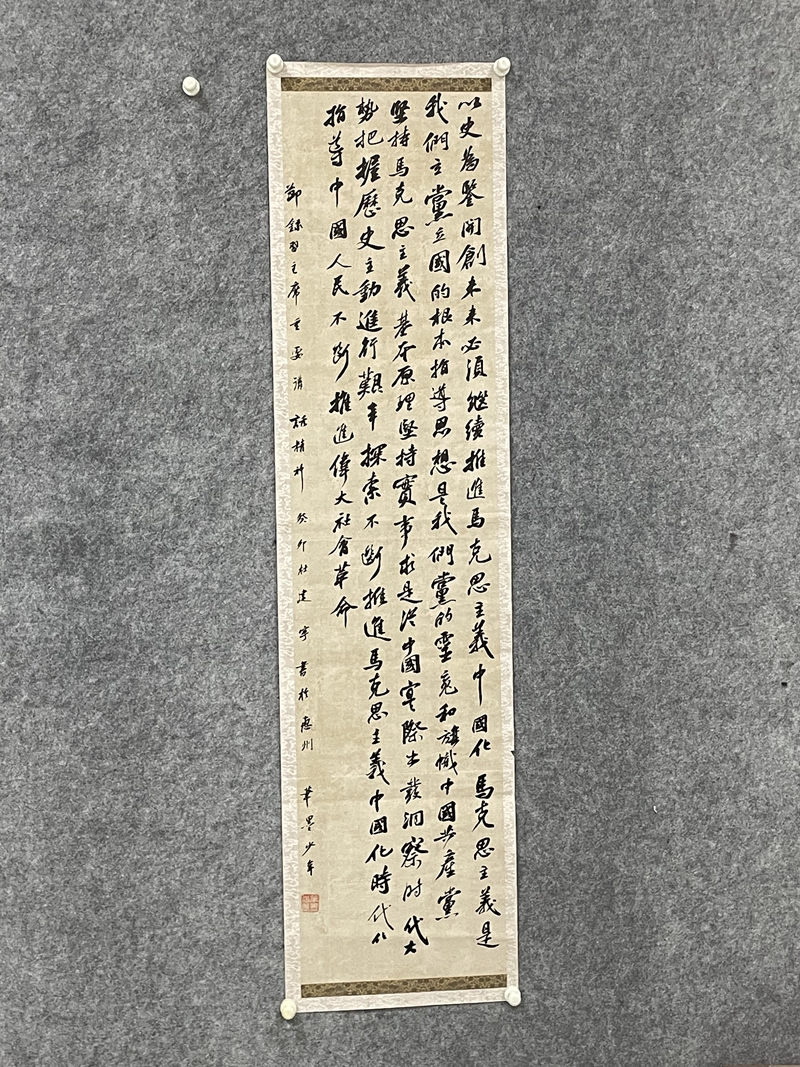 以史為鑒開創未来必須繼續推進馬克思主義中國化馬克思主義是
我們立黨立國的根本指導思想是我們黨的靈魂和旗幟中國共產黨
堅持馬克思主義基本原理堅持實事求是從中國實際出發洞察时代大
勢把握歷史主動進行艱辛探索不斷推進馬克思主義中國化時代化
指導中國人民不斷推進偉大社會革命
節錄習主席重要講話精神 癸卯杜建寧書於惠州 筆墨少年